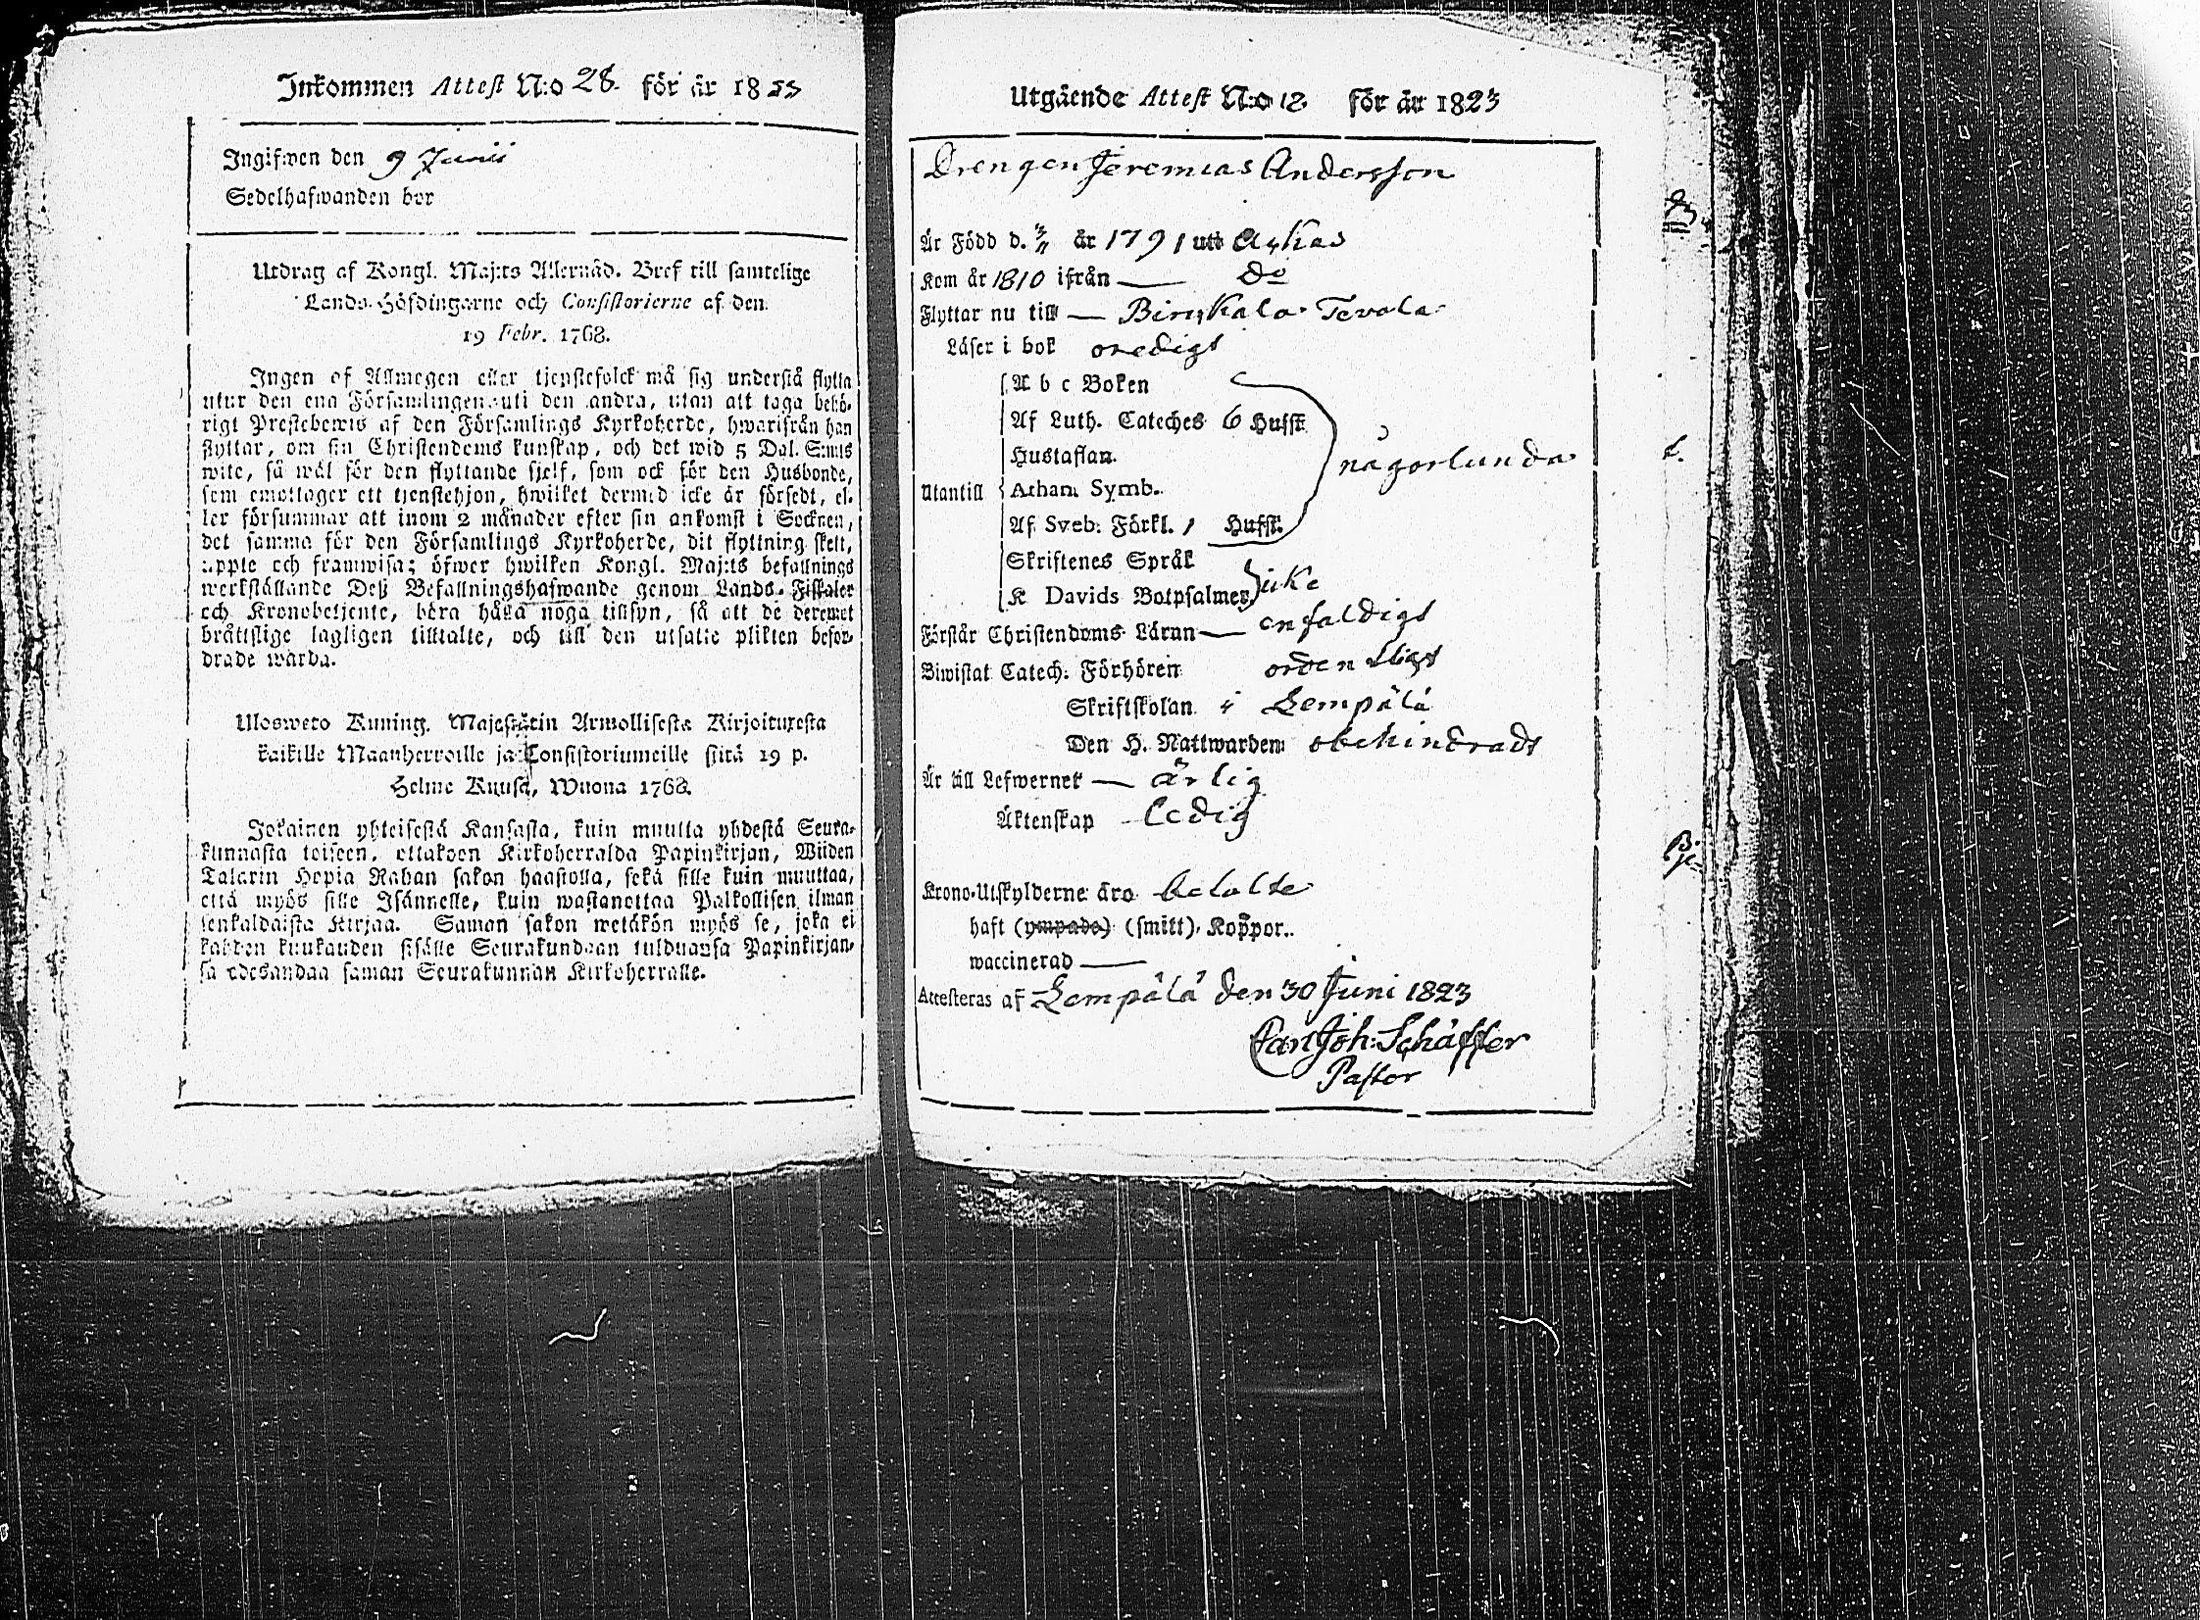 Inkommen Attest N:o 28. för år 1823
Ingifwen den 9 Junii
Sedelhafwanden bor
Utdrag af Kongl. Maj:ts Allernåd. Bref till samtelige
Lands-Höfdingarne och Consistorierne af den
19 Febr. 1768.
Ingen af Allmogen eller tjenstefolck må sig understå flytta
utur den ena Församlingen uti den andra, utan att taga behö-
rigt Prestebewis af den Församlings Kyrkoherde, hwarifrån han
flyttar, om sin Christendoms kunskap, och det wid 5 Dal. S:mts
wite, så wäl för den flyttande sjelf, som ock för den Husbonde,
som emottager ett tjenstehjon, hwilket dermed icke är försedt, el-
ler försummar att inom 2 månader efter sin ankomst i Socknen,
det samma för den Församlings Kyrkoherde, dit flyttning skett,
uppte och framwisa; öfwer hwilken Kongl. Maj:ts befallnings
werkställande Deß Befallningshafwande genom Lands-Fiskaler
och Kronobetjente, böra hålla noga tillsyn, så att de deremot
bråttslige lagligen tilltalte, och till den utsatte plikten befor-
drade warda.
Ulosweto Kuning. Majestätin Armollisesta Kirjoituxesta
kaikille Maanherroille ja Consistoriumeille siitä 19 p.
Helme Kuusa, Wuona 1768.
Jokainen yhteisestä Kansasta, kuin muutta yhdestä Seura-
kunnasta toiseen, ottakoon Kirkoherralda Papinkirjan, Wiiden
Talarin Hopia Rahan sakon haastolla, sekä sille kuin muuttaa,
että myös sille Isännelle, kuin wastanottaa Palkollisen ilman
senkaldaista Kirjaa. Saman sakon wetäkön myös se, joka ei
kahden kuukauden sisälle Seurakundaan tulduansa Papinkirjan-
sa edesandaa saman Seurakunnan Kirkoherralle.
Utgående Attest N:o 12. för år 1823
Drengen Jeremias Andersson
Är Född d. 3/11 år 1791 uti
Kom år 1810 ifrån — Do
Flyttar nu till — Birkkala Tevola
Läser i bok oredigt
A b c Boken
Af Luth. Cateches 6 Hufst
Hustaflan.
någorlunda
Utantill Athan. Symb.
Af Sveb: Förkl. 1 Hufst.
Skriftenes Språk
K Davids Botpsalmer icke
Förstår Christendoms Läran — enfaldigt
Biwistat Catech: Förhören ordentligt
Skriftskolan i Lempälä
Den H. Nattwarden obehindradt
Är till Lefwernet — ärlig
Äktenskap ledig
Krono-Utskylderne äro betalte
haft (ympade) (smitt). Koppor..
waccinerad —
Attesteras af Lempälä den 30 Juni 1823
Carl Joh: Schäffer
Pastor